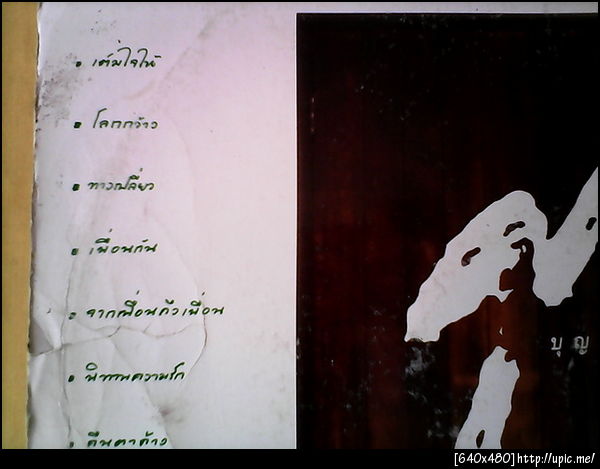 • เต็มใจให้
• โลกกว้าง
• ทางเปลี่ยว
• เพื่อนกัน
• จากเพื่อนถึงเพื่อน
• นิทานความรัก
• คืนตาค้าง
บุญ
[640x480]http://upic.me/